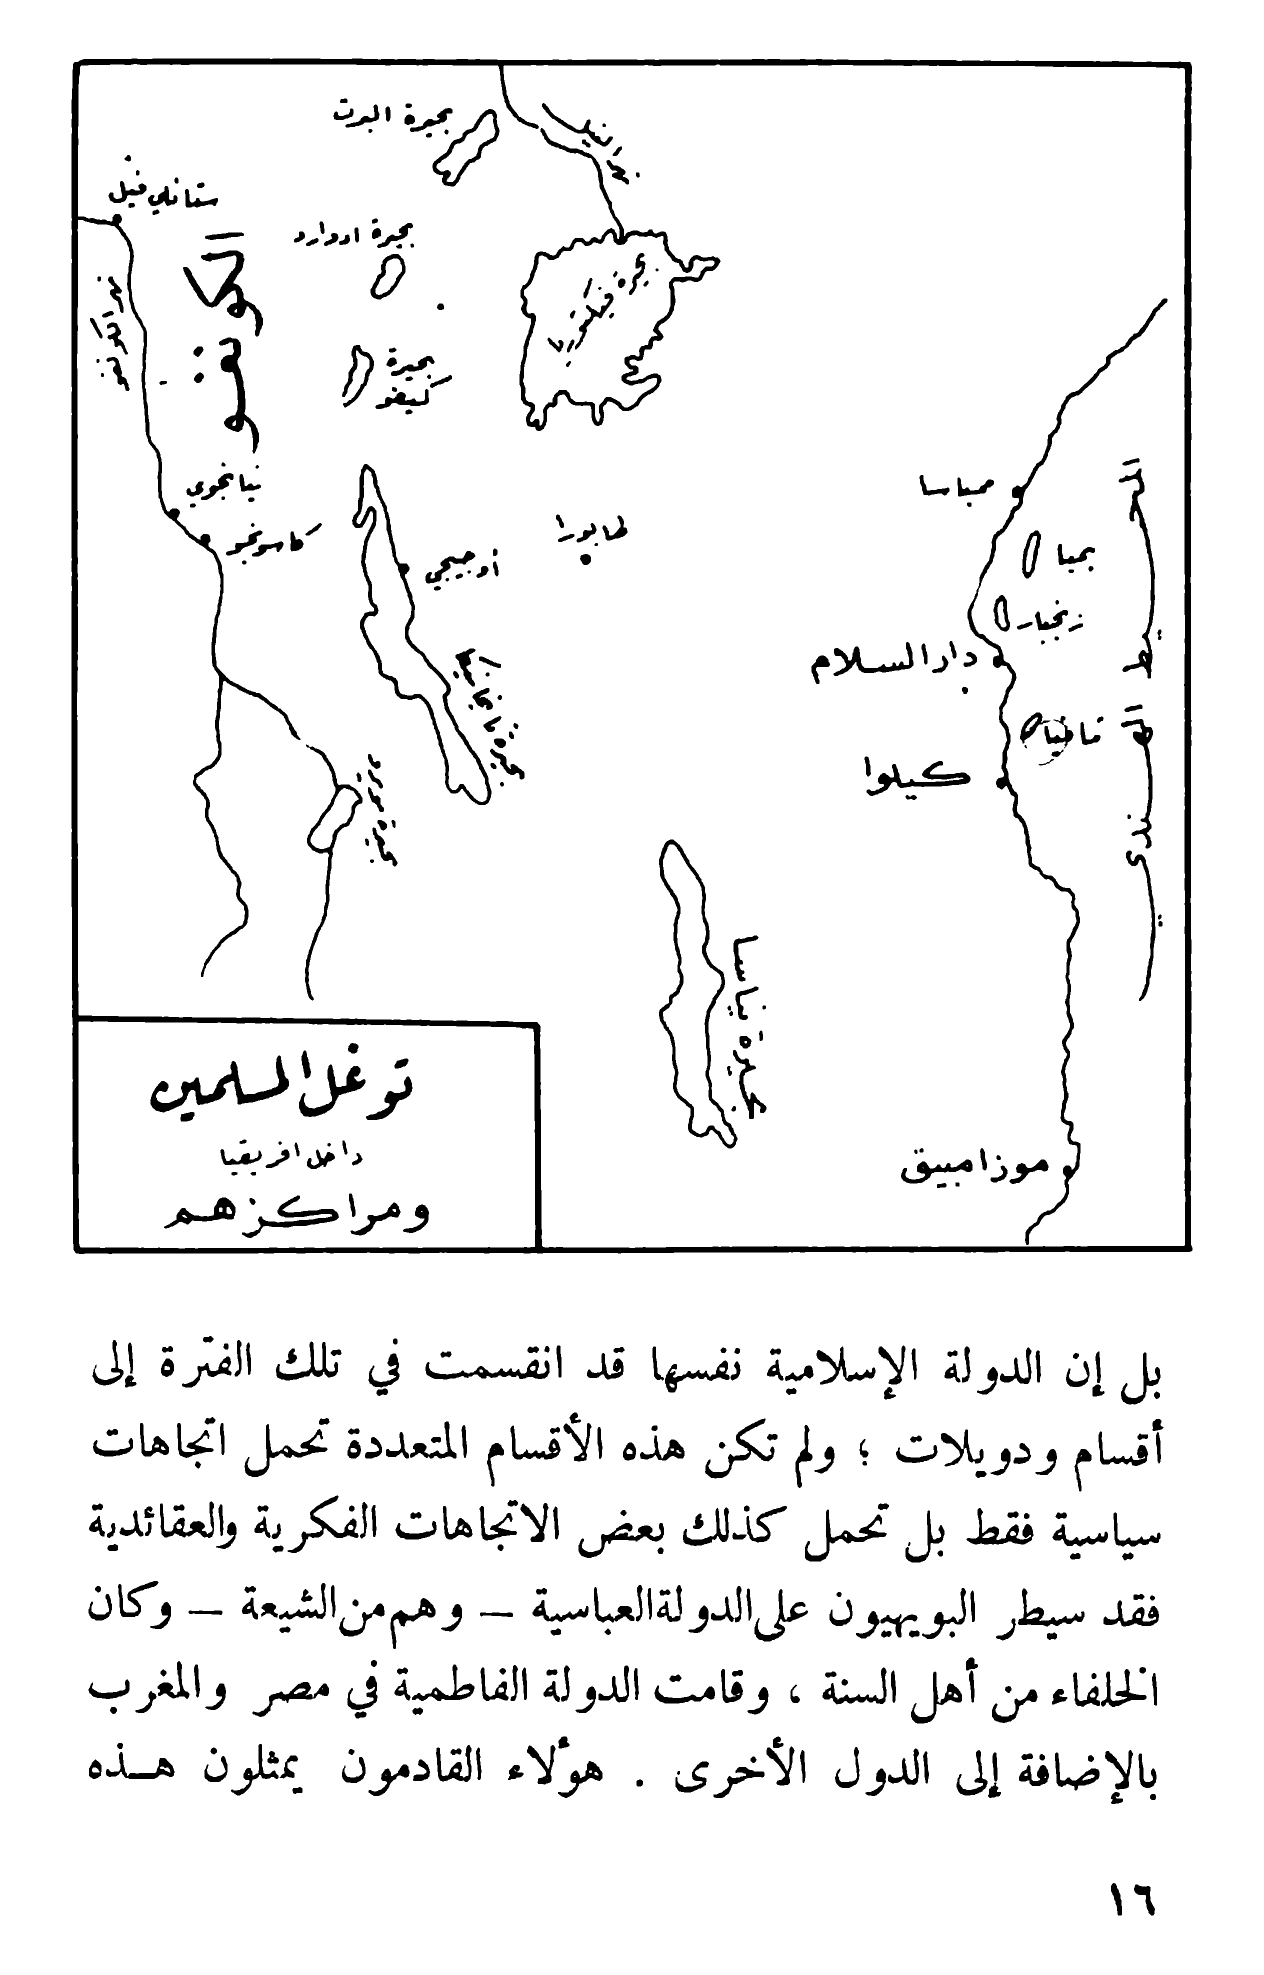 بحيرة البرت
نهر النيل
ستانلي فيل
بحيرة ادوارد
الكونغو
نهر الكونغو
بحيرة فيكتوريا
بحيرة
كيفو
نيانجوي
كاسونجو
ممباسا
طابورا
أوجيجي
بمبا
زنجبار
دار السلام
المحيط الهندي
بحيرة تانجانيقا
مافيا
كيلوا
بحيرة مويرو
بحيرة نياسا
موزامبيق
توغل المسلمين
داخل افريقيا
ومراكزهم
بل إن الدولة الإسلامية نفسها قد انقسمت في تلك الفترة إلى
أقسام ودويلات ؛ ولم تكن هذه الأقسام المتعددة تحمل اتجاهات
سياسية فقط بل تحمل كذلك بعض الاتجاهات الفكرية والعقائدية
فقد سيطر البويهيون على الدولة العباسية – وهم من الشيعة – وكان
الخلفاء من أهل السنة ، وقامت الدولة الفاطمية في مصر والمغرب
بالإضافة إلى الدول الأخرى . هؤلاء القادمون يمثلون هـذه
١٦